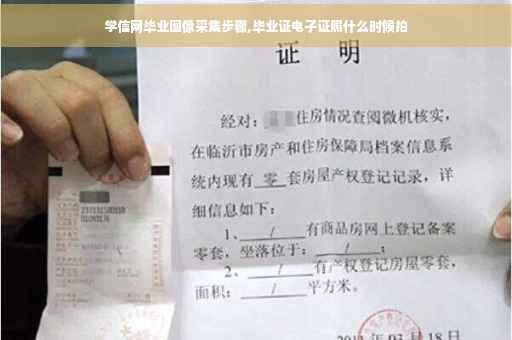 学信网毕业图像采集步骤,毕业证电子证照什么时候拍
证 明
经对: 住房情况查阅微机核实,
在临沂市房产和住房保障局档案信息系
统内现有 零 套房屋产权登记记录, 详
细信息如下:
1、 / 有商品房网上登记备案
零套, 坐落位于: / ;
2、 / 有产权登记房屋零套,
面积: / 平方米。
03 月 18 日